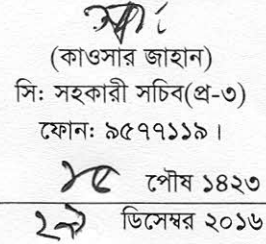 (কাওসার জাহান)
সি: সহকারী সচিব(প্র-৩)
ফোন: ৯৫৭৭১১৯।
১৫ পৌষ ১৪২৩
২৯ ডিসেম্বর ২০১৬